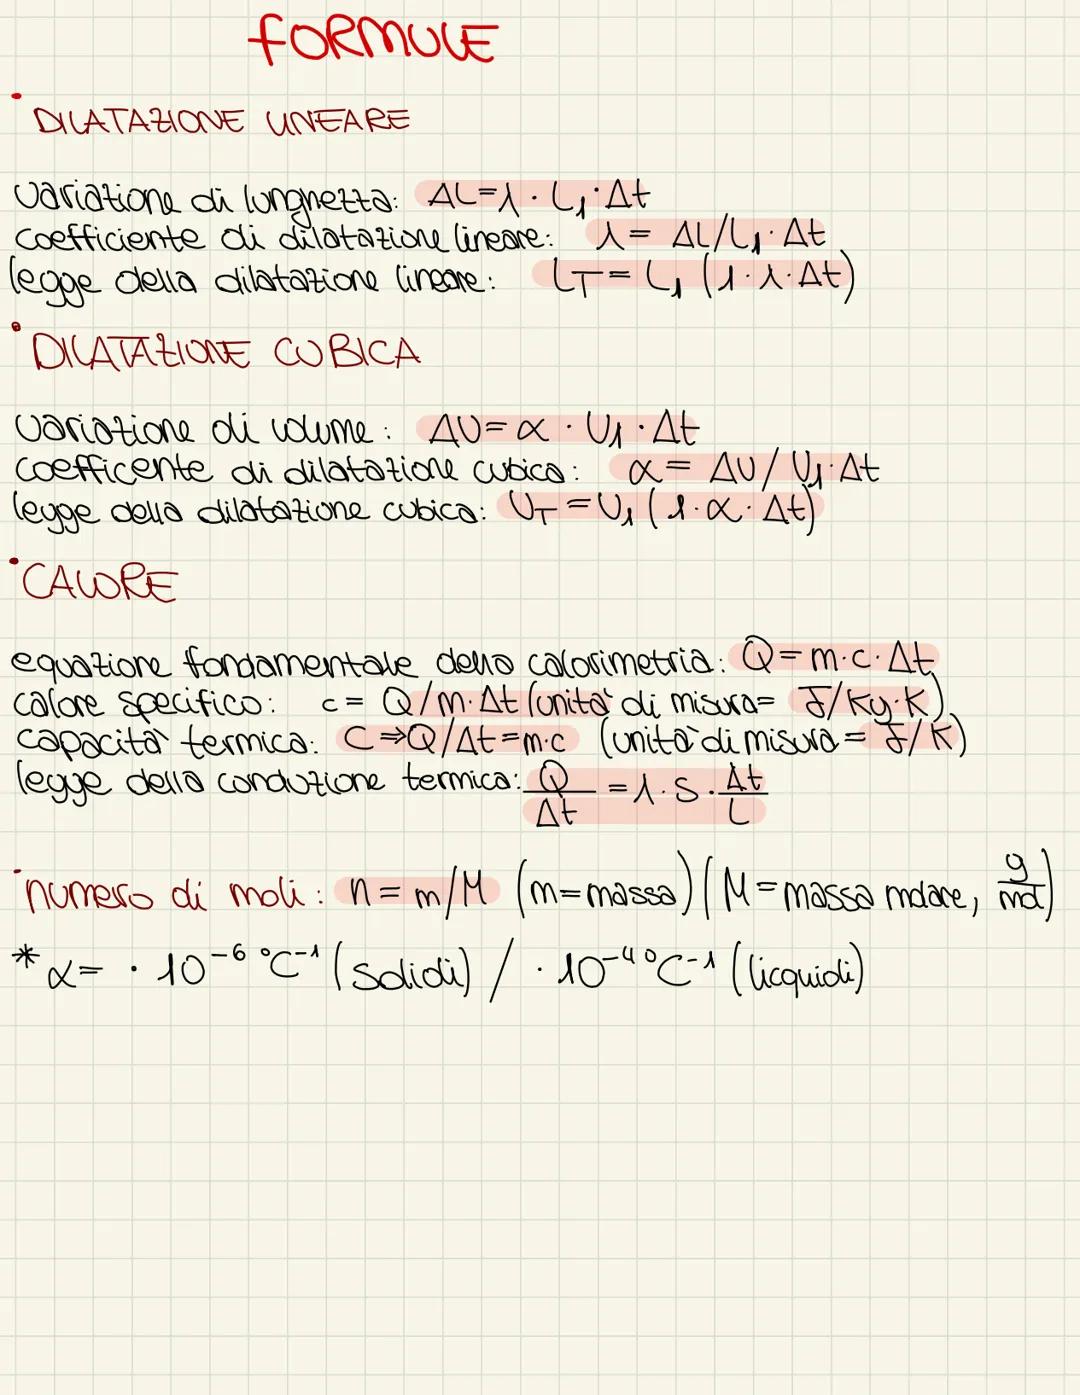 FORMULE
• DILATAZIONE LINEARE
variazione di lunghezza: ΔL=λ·L₁·Δt
coefficiente di dilatazione lineare: λ= ΔL/L₁·Δt
legge della dilatazione lineare: LT=L₁(1·λ·Δt)
• DILATAZIONE CUBICA
variazione di volume: ΔV=α·V₁·Δt
coefficente di dilatazione cubica: α= ΔV/V₁·Δt
legge della dilatazione cubica: VT=V₁(1·α·Δt)
• CALORE
equazione fondamentale della calorimetria: Q=m·c·Δt
calore specifico: c= Q/m·Δt (unità di misura= J/Kg·K)
capacità termica: C⇒Q/Δt=m·c (unità di misura= J/K)
legge della conduzione termica: Q/Δt =λ·S·Δt/L
• numero di moli: n=m/M (m=massa)(M=massa molare, g/mol)
* α= ·10⁻⁶ °C⁻¹ (solidi) / ·10⁻⁴ °C⁻¹ (licquidi)